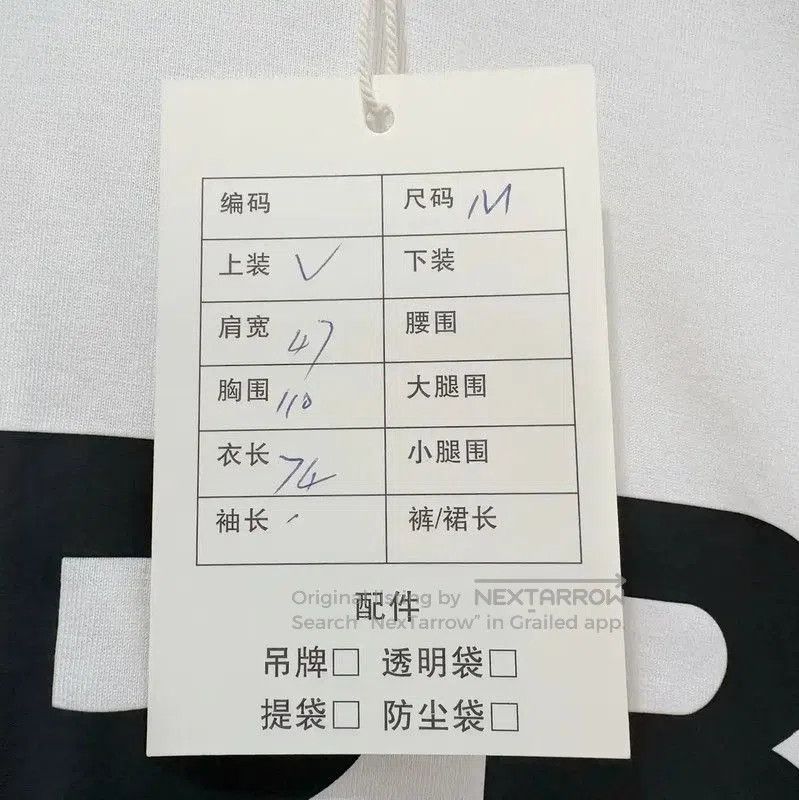 编码 尺码 M
上装 ✓ 下装
肩宽 47 腰围
胸围 110 大腿围
衣长 74 小腿围
袖长 裤/裙长
配件
Original listing by NEXTARROW
Search "NexTarrow" in Grailed app.
吊牌□ 透明袋□
提袋□ 防尘袋□